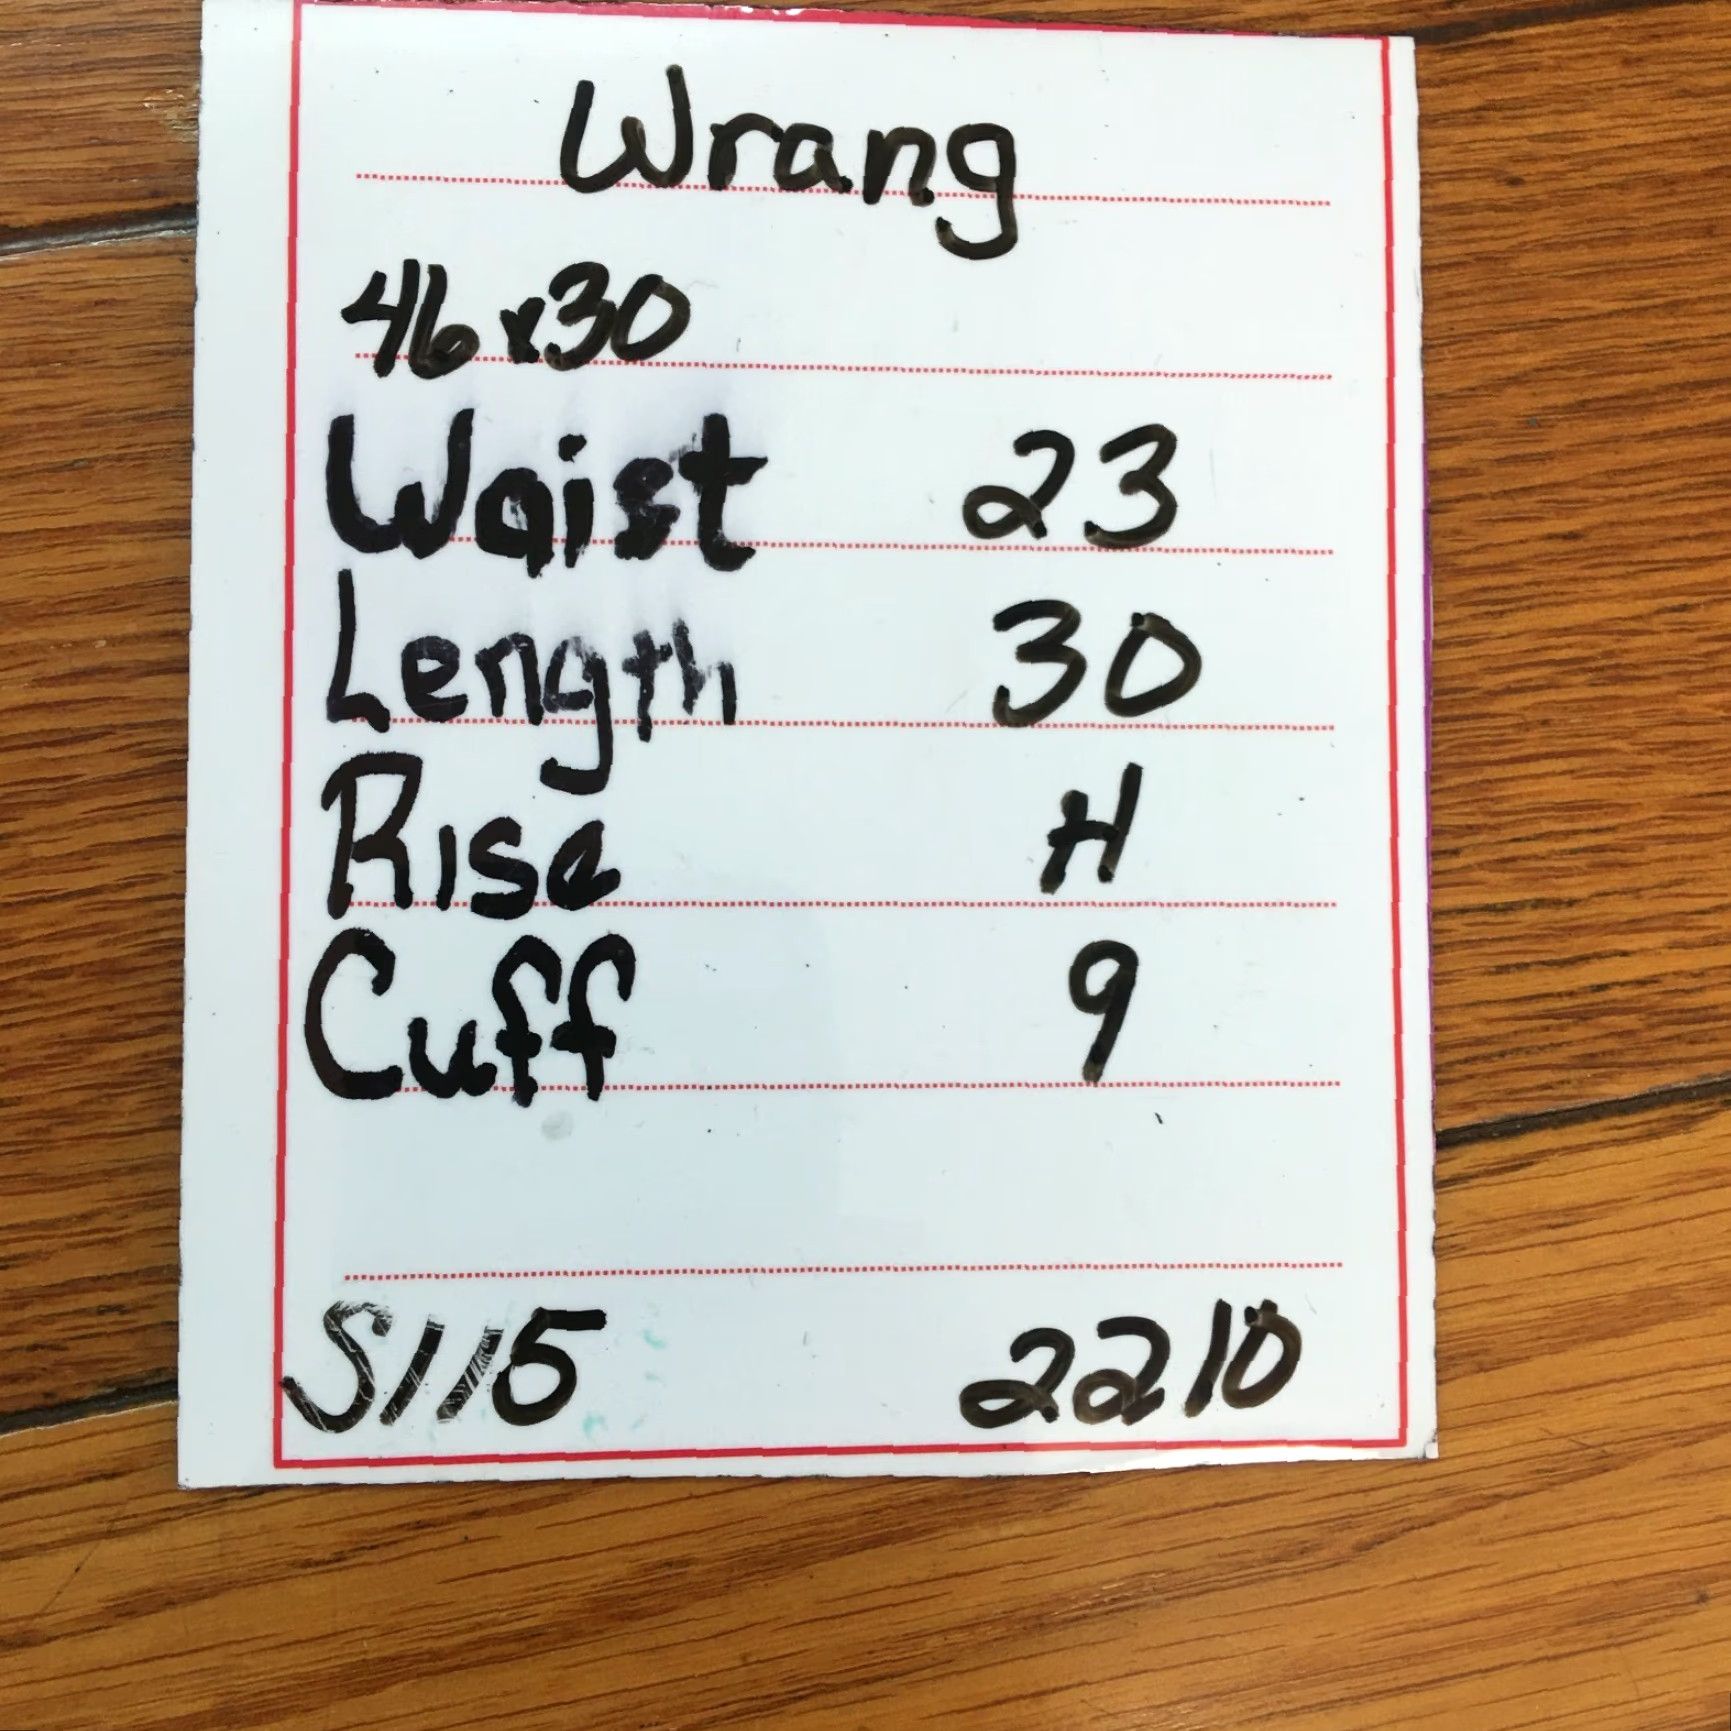 Wrang
46x30
Waist 23
Length 30
Rise H
Cuff 9
S115 2210